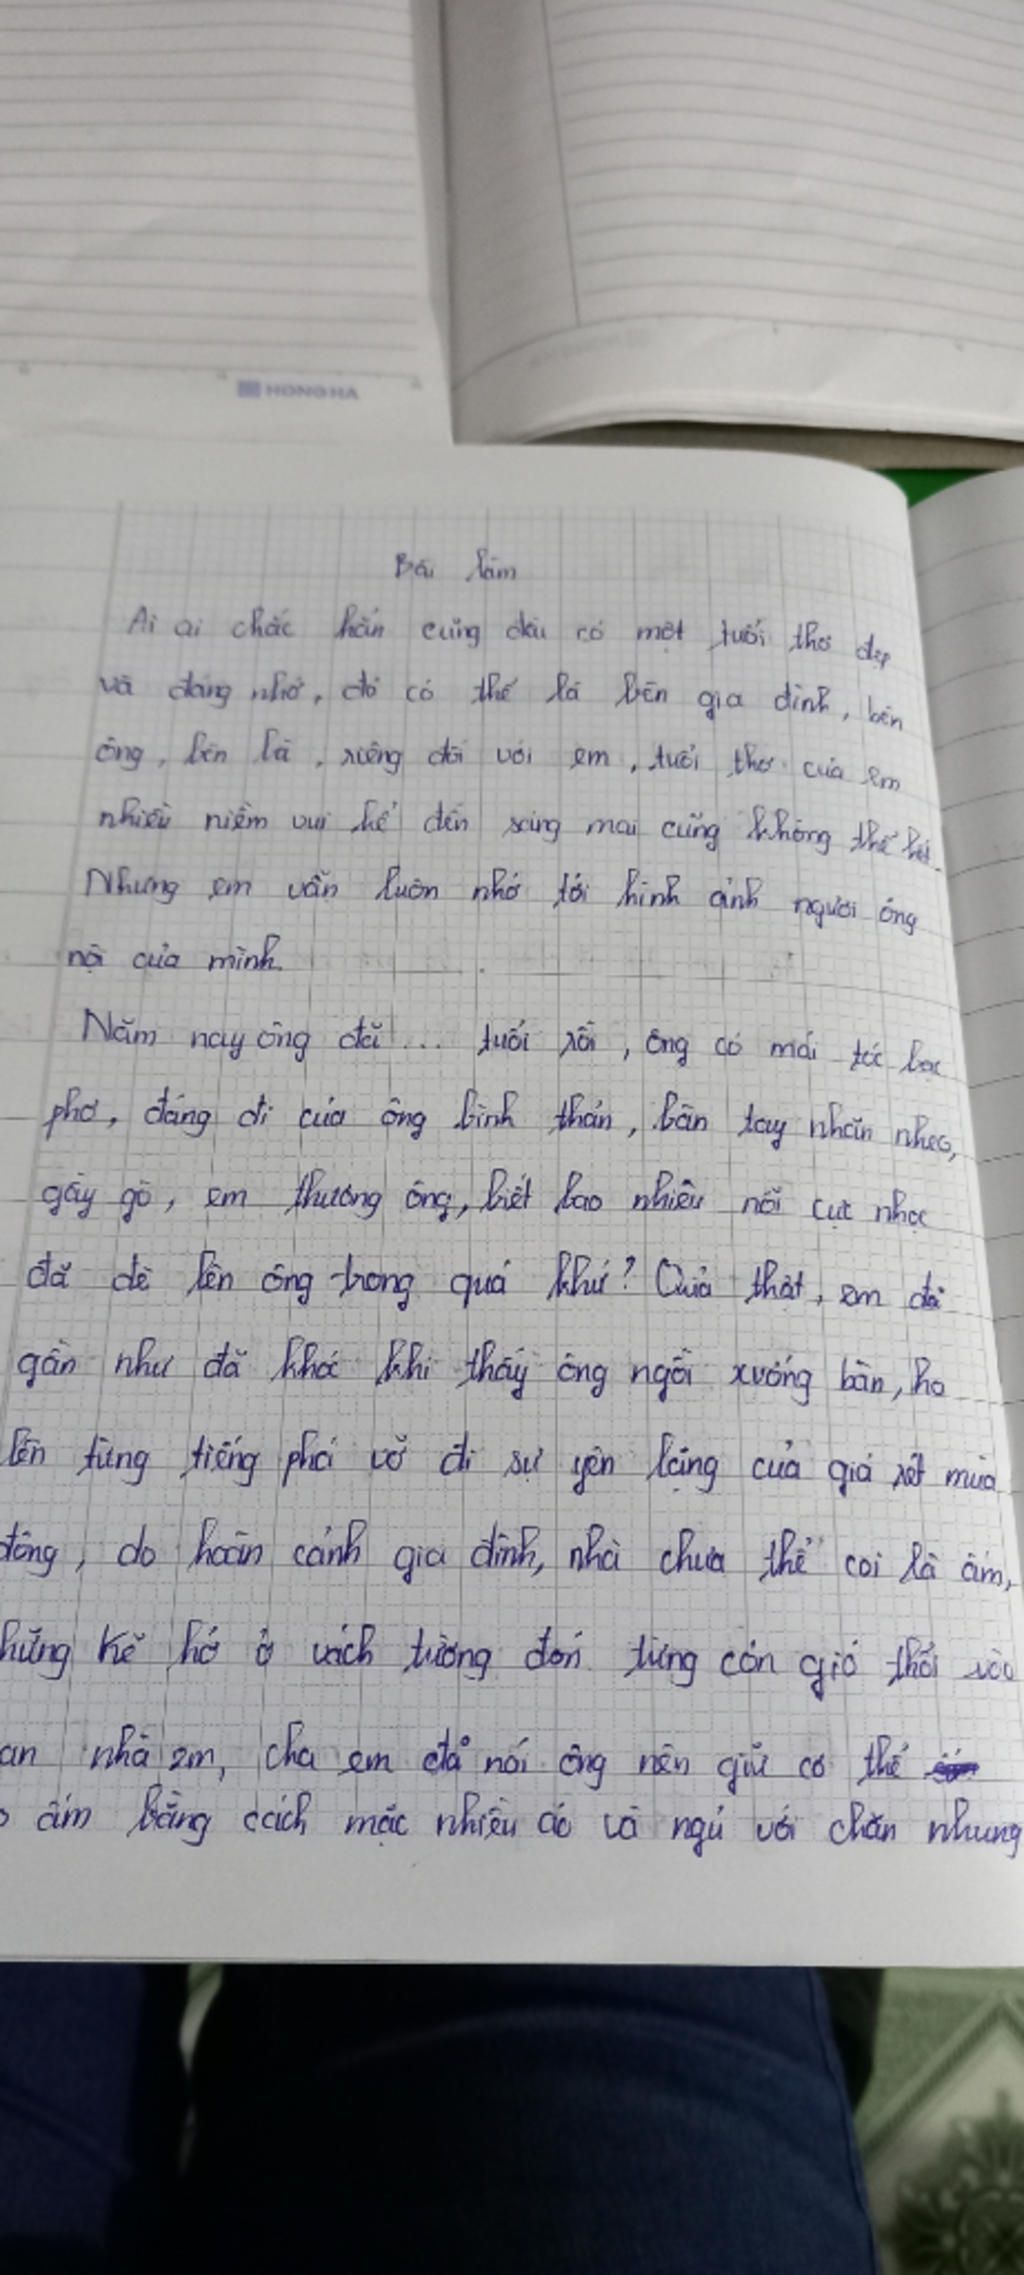 HONG HA
Bài làm
Ai ai chắc hẳn cũng đều có một tuổi thơ đẹp
và đáng nhớ, đó có thể là bên gia đình, bên
ông, bên bà, riêng đối với em, tuổi thơ của em
nhiều niềm vui kể đến sáng mai cũng không thể hết.
Nhưng em vẫn luôn nhớ tới hình ảnh người ông
nội của mình.
Năm nay ông đã ... tuổi rồi, ông có mái tóc bạc
phơ, dáng đi của ông bình thản, bàn tay nhăn nheo,
gầy gò, em thương ông, biết bao nhiêu nỗi cực nhọc
đã đè lên ông trong quá khứ? Quả thật, em đã
gần như đã khóc khi thấy ông ngồi xuống bàn, ho
lên từng tiếng phá vỡ đi sự yên lặng của giá rét mùa
đông, do hoàn cảnh gia đình, nhà chưa thể coi là ấm,
những kẽ hở ở vách tường đón từng cơn gió thổi vào
an nhà em, cha em đã nói ông nên giữ cơ thể
ấm bằng cách mặc nhiều áo và ngủ với chăn nhưng